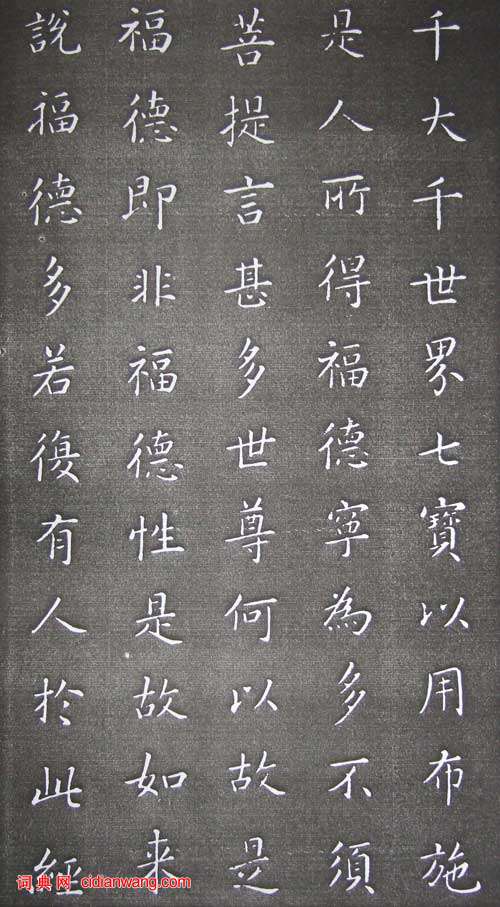 千大千世界七寶以用布施
是人所得福德寧為多不須
菩提言甚多世尊何以故是
福德即非福德性是故如来
說福德多若復有人於此經
词典网 cidianwang.com